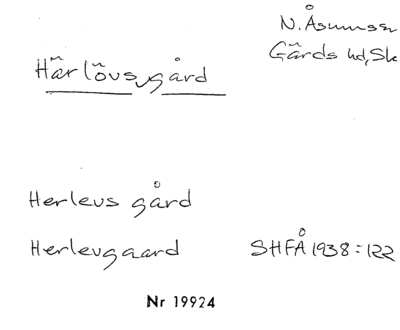 N. Åsumssn
Gärds hd, Sk
Härlövs gård
Herlevs gård
Herlevgaard SHFÅ 1938:122
Nr 19924